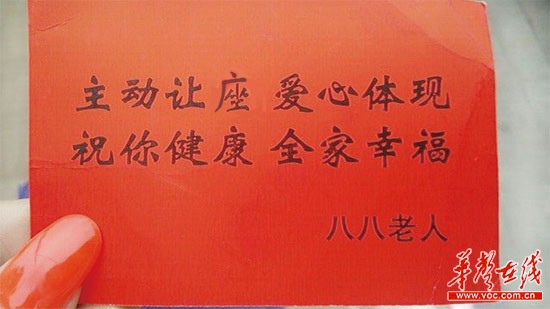 主动让座 爱心体现
祝你健康 全家幸福
八八老人
华声在线
www.voc.com.cn